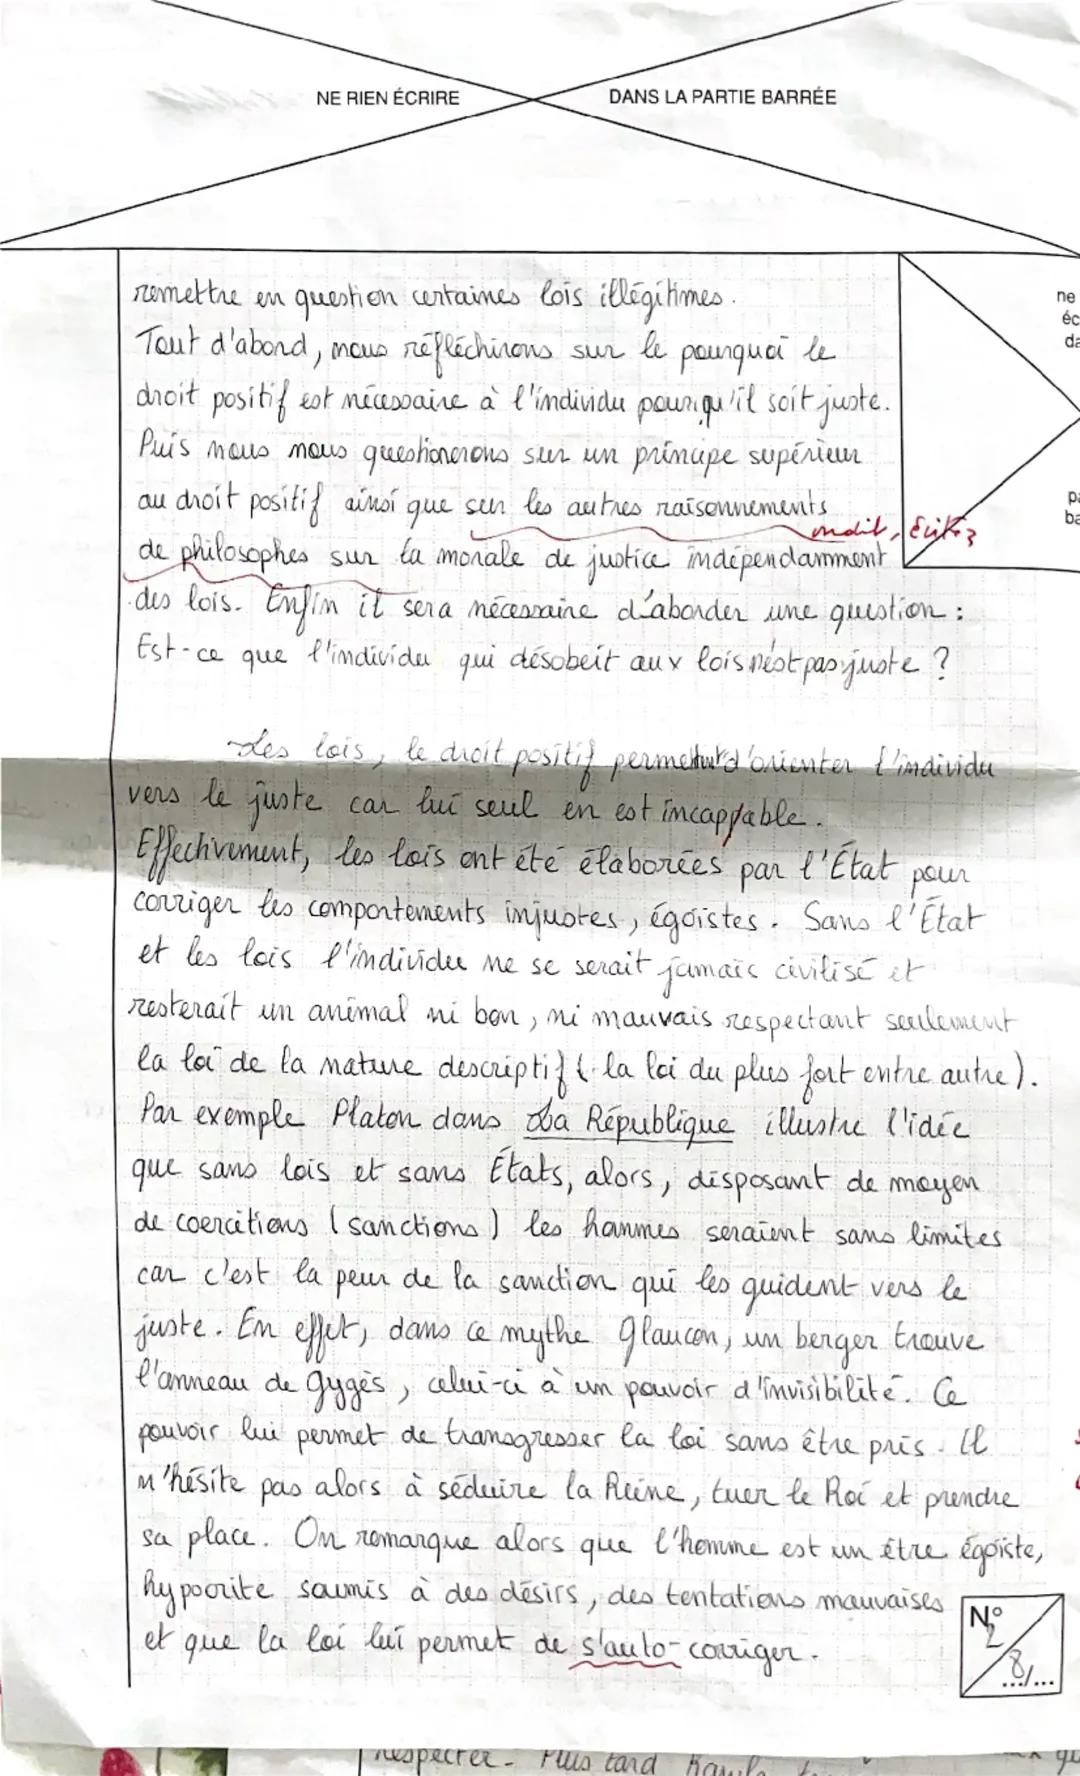 NE RIEN ÉCRIRE
DANS LA PARTIE BARRÉE
remettre en question certaines lois illégitimes.
Tout d'abord, nous réfléchirons sur le pourquoi le
droit positif est nécessaire à l'individu pour qu'il soit juste.
Puis nous nous questionerons sur un principe supérieur
au droit positif ainsi que sur les autres raisonnements
de philosophes sur la morale de justice indépendamment
des lois. Enfin il sera nécessaire d'aborder une question :
Est-ce que l'individu qui désobeit aux lois n'est pas juste ?
Les lois, le droit positif permettent d'orienter l'individu
vers le juste car lui seul en est incappable.
Effectivement, les lois ont été élaborées par l'État pour
corriger les comportements injustes, égoïstes. Sans l'État
et les lois l'individu ne se serait jamais civilisé et
resterait un animal ni bon, ni mauvais respectant seulement
la loi de la nature descriptif (la loi du plus fort entre autre).
Par exemple Platon dans La République illustre l'idée
que sans lois et sans États, alors, disposant de moyen
de coercitions (sanctions) les hommes seraient sans limites
car c'est la peur de la sanction qui les guident vers le
juste. En effet, dans ce mythe Glaucon, un berger trouve
l'anneau de Gygès, celui-ci à un pouvoir d'invisibilité. Ce
pouvoir lui permet de transgresser la loi sans être pris. Il
n'hésite pas alors à séduire la Reine, tuer le Roi et prendre
sa place. On remarque alors que l'homme est un être égoïste,
hypocrite soumis à des désirs, des tentations mauvaises
et que la loi lui permet de s'auto-corriger.
N°
2
8/...
respecter. Plus tard